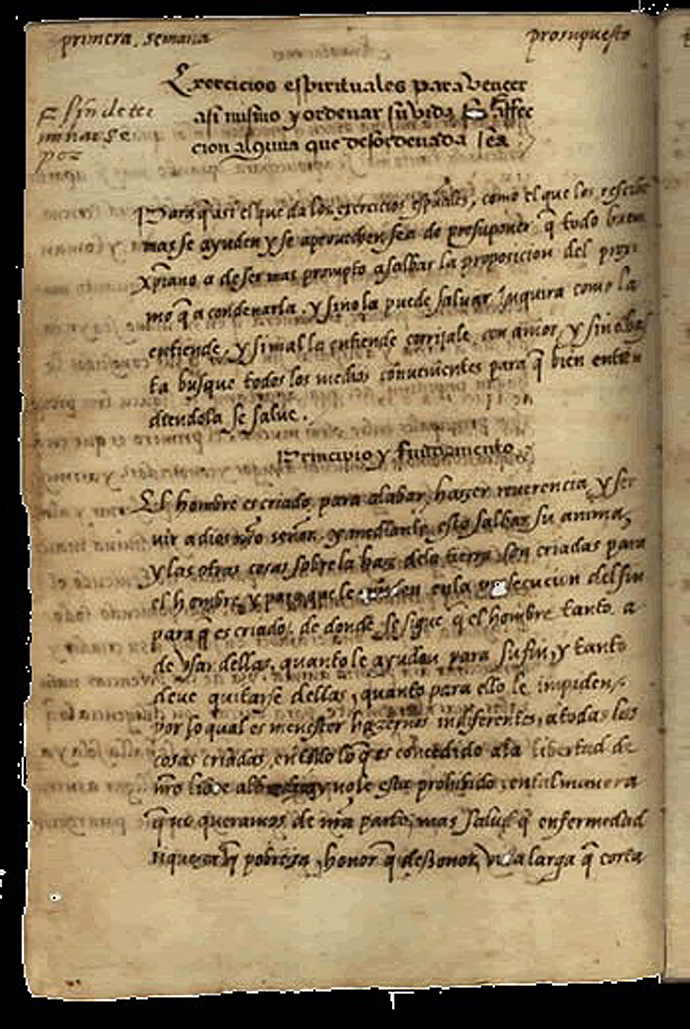 primera. semana
prosupuesto
Exercicios espirituales para vençer
asi mismo y ordenar su vida sin affec
cion alguna que desordenada sea.
sin deter
minarse
por
Para q̃ asi el que da los exercicios espũales, como el que los rescibe
mas se ayuden y se aprouechen sea de presuponer q̃ todo buen
xp̃iano a de ser mas prompto a salbar la proposicion del proxi
mo q̃ a condenarla. y si no la puede saluar Inquira como la
entiende, y si mal la entiende corrijale con amor, y si no bas
ta busque todos los medios conuenientes para q̃ bien enten
diendola se salue.
Principio y fundamento
El hombre es criado para alabar, hazer reuerencia, y ser
uir a dios nr̃o señor. y mediante esto salbar su anima,
y las otras cosas sobre la haz dela tierra son criadas para
el hombre, y para que le ayuden en la prosecucion del fin
para q̃ es criado. de donde se sigue q̃ el hombre tanto a
de vsar dellas, quanto le ayudan para su fin, y tanto
deue quitarse dellas, quanto para ello le impiden,
por lo qual es menester hazernos indiferentes, a todas las
cosas criadas, en todo lo q̃ es concedido ala libertad de
nr̃o libre albedrio, y no le esta prohibido, en tal manera
que no queramos de nr̃a parte, mas salud q̃ enfermedad
riqueza q̃ pobreza, honor q̃ desonor, vida larga q̃ corta